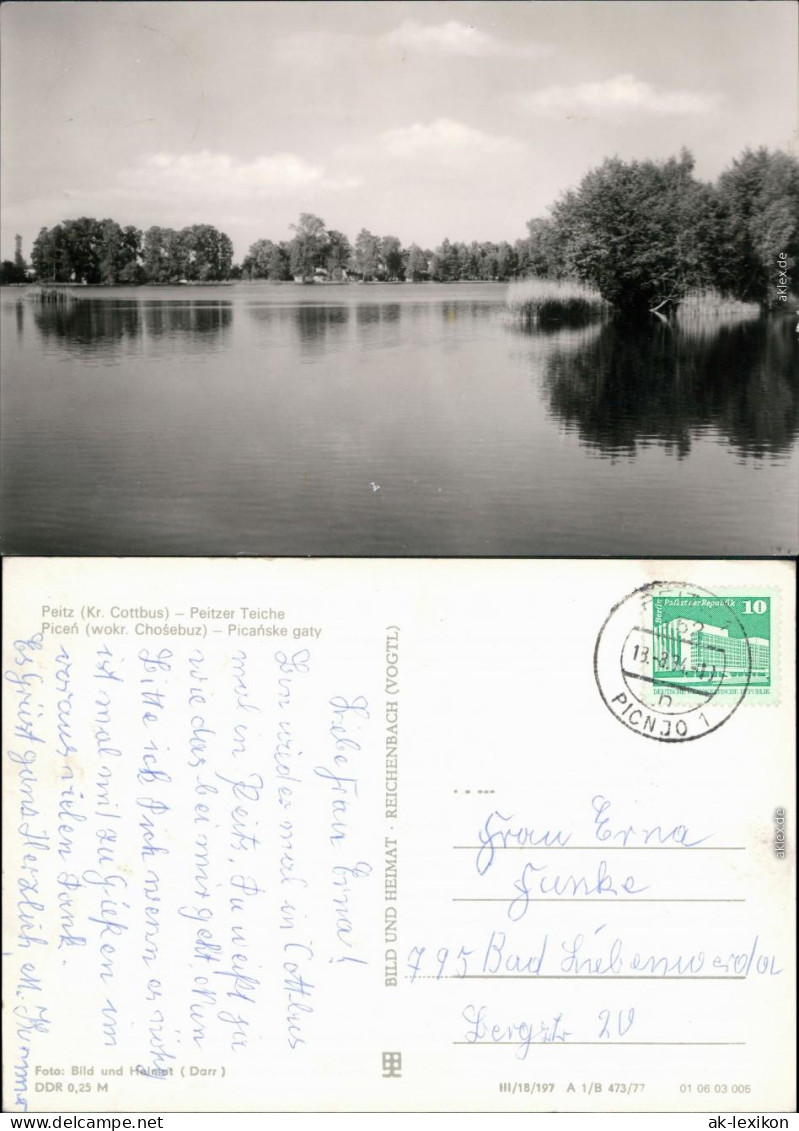 aklex.de
Peitz (Kr. Cottbus) – Peitzer Teiche
Piceń (wokr. Chośebuz) – Picańske gaty
Liebe Frau Erna!
Bin wieder mal in Cottbus
mal in Peitz. Du weißt ja
wie das bei mir geht. Nun
Bitte ich Dich wenn es nötig
ist mal mit zu Gießen im
voraus vielen Dank.
Es Grüst ganz Herzlich, M.
BILD UND HEIMAT · REICHENBACH (VOGTL)
Berlin Palast der Republik 10
DEUTSCHE DEMOKRATISCHE REPUBLIK
PEITZ 1
62
13.-8.84.-11
n
PICNJO 1
Frau Erna
Funke
795 Bad Liebenwerda
Bergstr 20
Foto: Bild und Heimat (Darr)
DDR 0,25 M
III/18/197 A 1/B 473/77 01 06 03 005
aklex.de
www.ak-lexikon.de
ak-lexikon